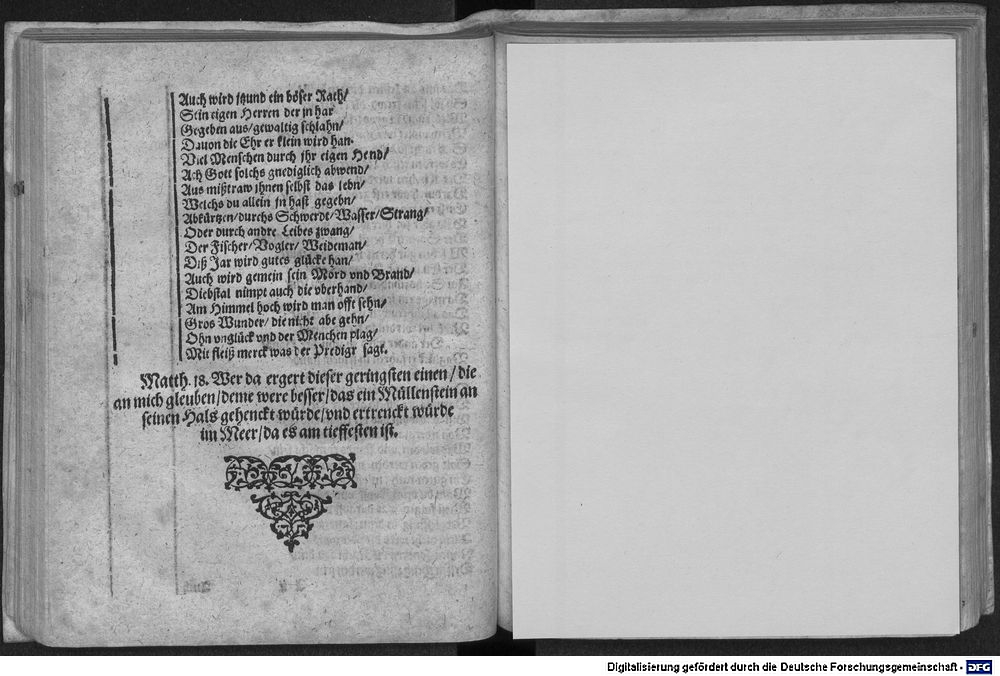 Auch wird jtzund ein böser Rath/
Sein eigen Herren der jn hat
Gegeben aus/gewaltig schlahn/
Dauon die Ehr er klein wird han.
Viel Menschen durch jhr eigen Hend/
Ach Gott solchs gnediglich abwend/
Aus mißtraw jhnen selbst das lebn/
Welchs du allein jn hast gegebn/
Abkürtzen/durchs Schwerdt/Wasser/Strang/
Oder durch andre Leibes zwang/
Der Fischer/Vogler/Weideman/
Diß Jar wird gutes glücke han/
Auch wird gemein sein Mord vnd Brand/
Diebstal nimpt auch die vberhand/
Am Himmel hoch wird man offt sehn/
Gros Wunder/die nicht abe gehn/
Ohn vnglück vnd der Menchen plag/
Mit fleiß merck was der Predigr sagt.
Matth. 18. Wer da ergert dieser geringsten einen/die
an mich gleuben/deme were besser/das ein Müllenstein an
seinen Hals gehenckt würde/vnd ertrenckt würde
im Meer/da es am tieffesten ist.
Digitalisierung gefördert durch die Deutsche Forschungsgemeinschaft - DFG